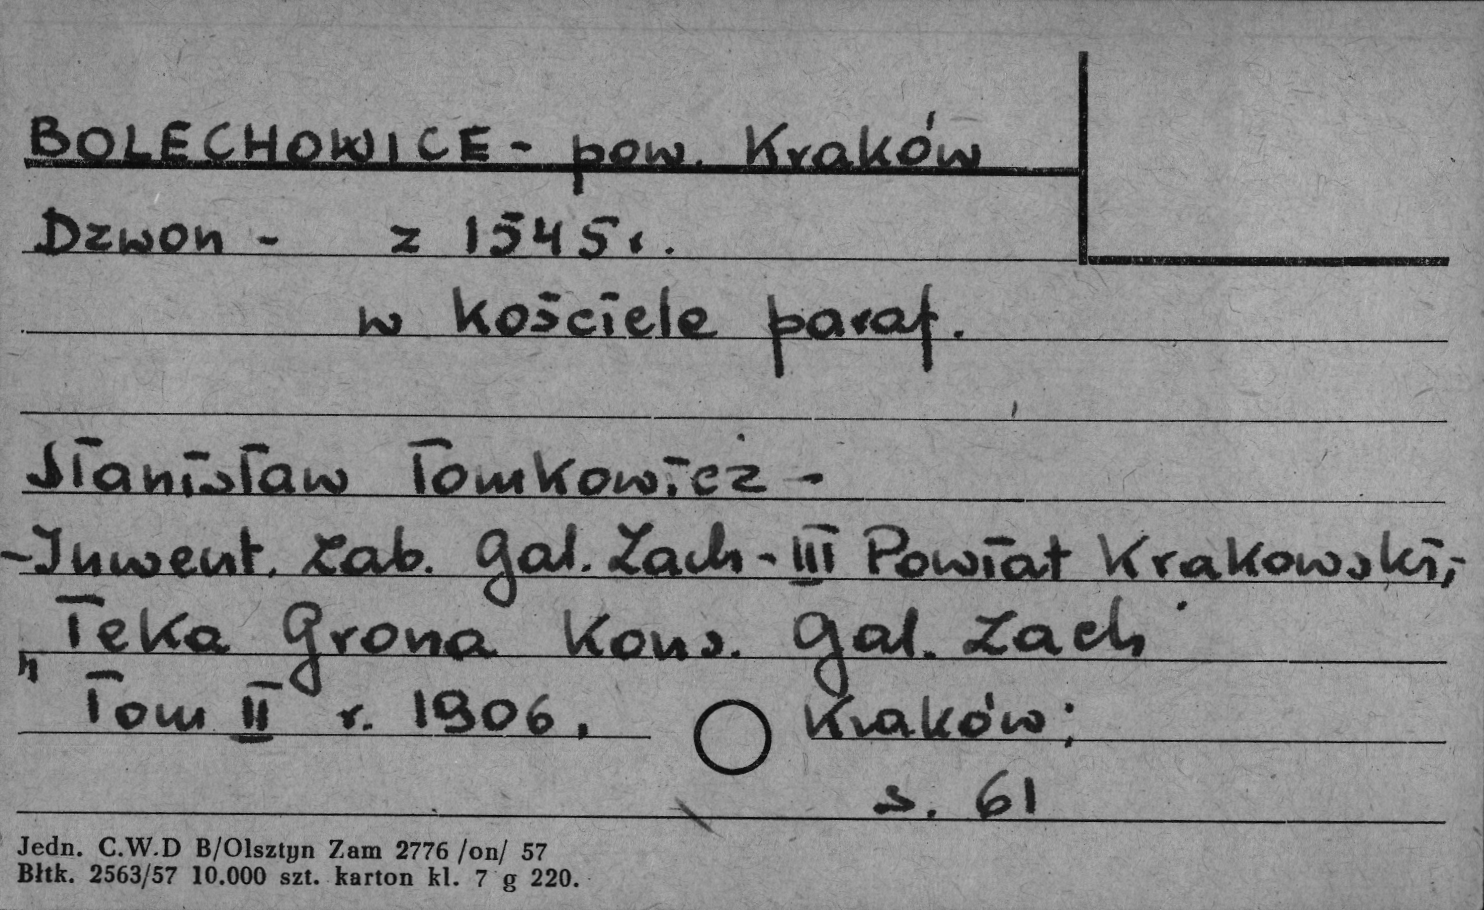 BOLECHOWICE - pow. Kraków
Dzwon - z 1545 r.
w kościele paraf.
Stanisław Tomkowicz -
- Inwent. Zab. Gal. Zach - III Powiat Krakowski,
"Teka Grona Kons. Gal. Zach"
Tom II r. 1906, Kraków;
s. 61
Jedn. C.W.D B/Olsztyn Zam 2776 /on/ 57
Błtk. 2563/57 10.000 szt. karton kl. 7 g 220.